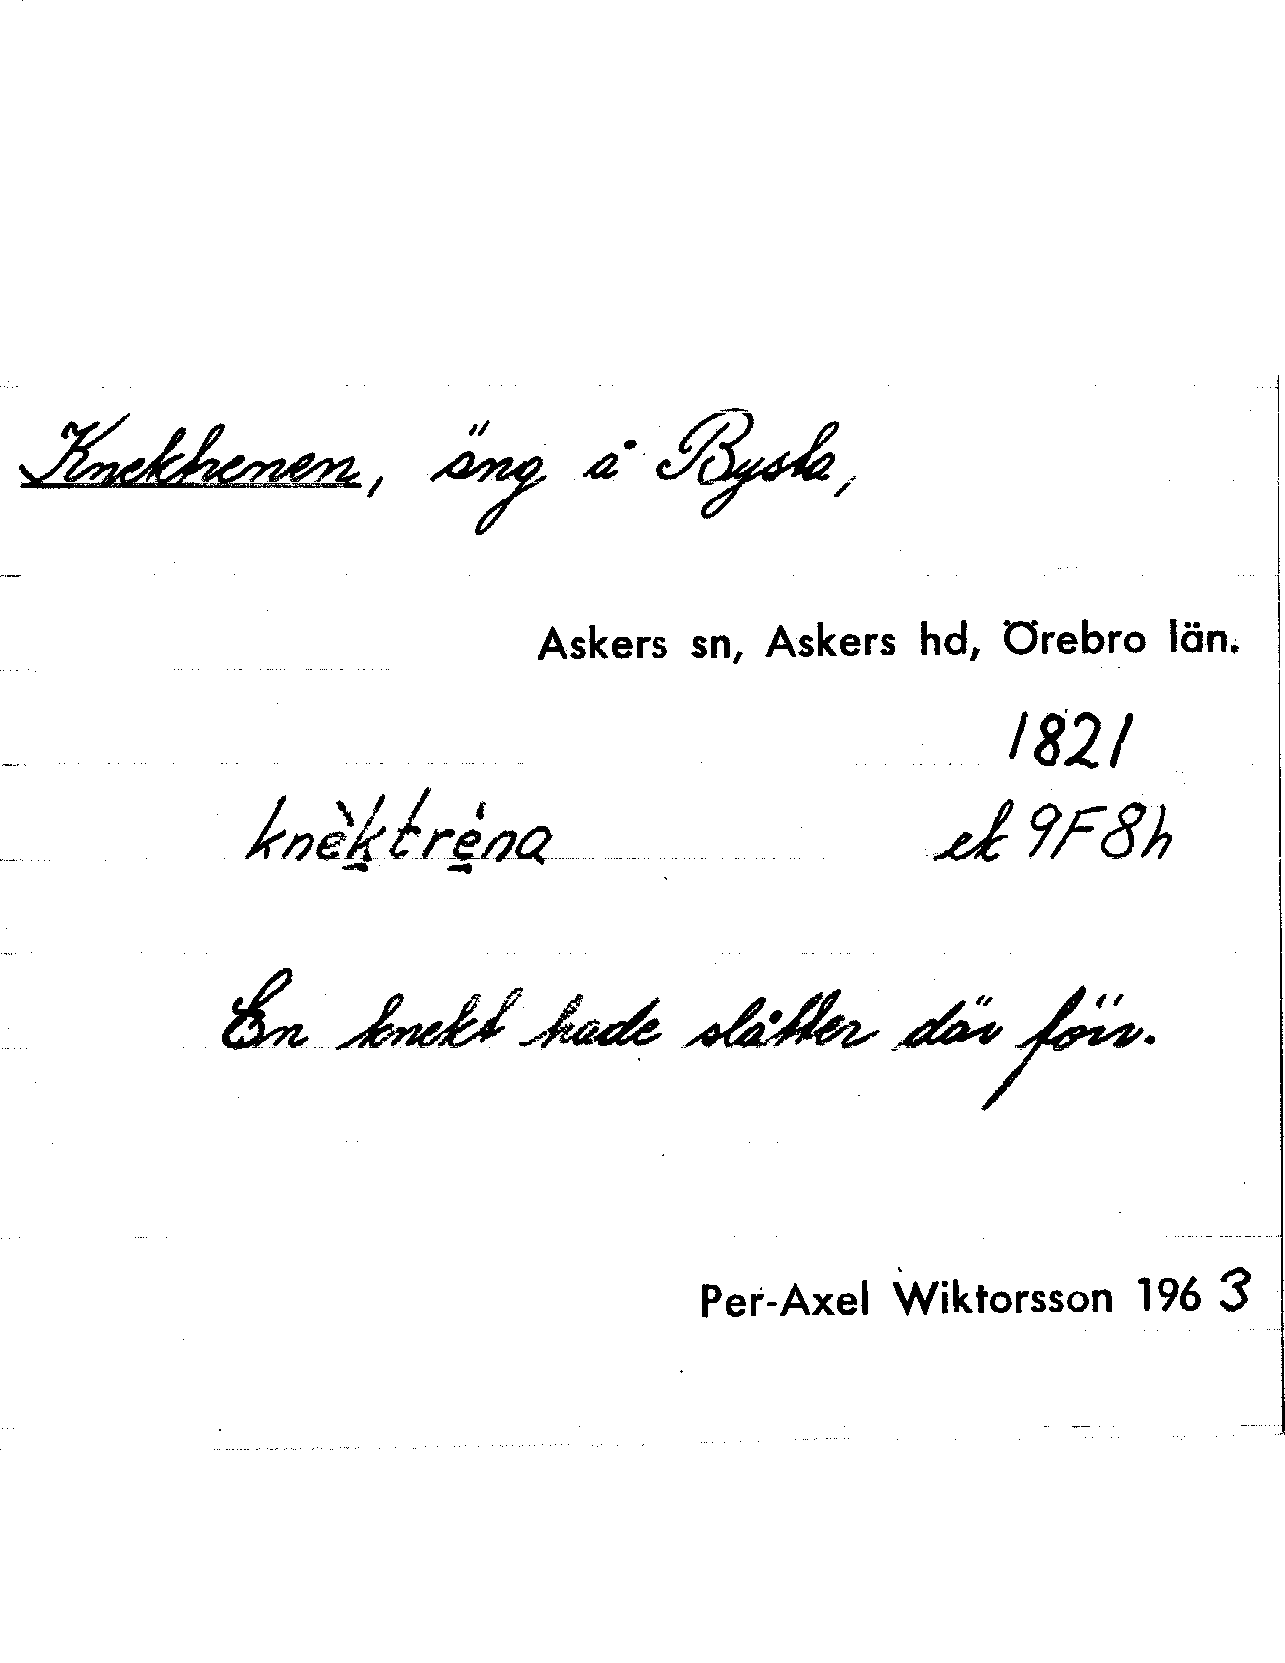 Knektrenen, äng å Bysta,
Askers sn, Askers hd, Örebro län.
1821
knèktréna
ek 9F8h
En knekt hade slåtter där förr.
Per-Axel Wiktorsson 1963